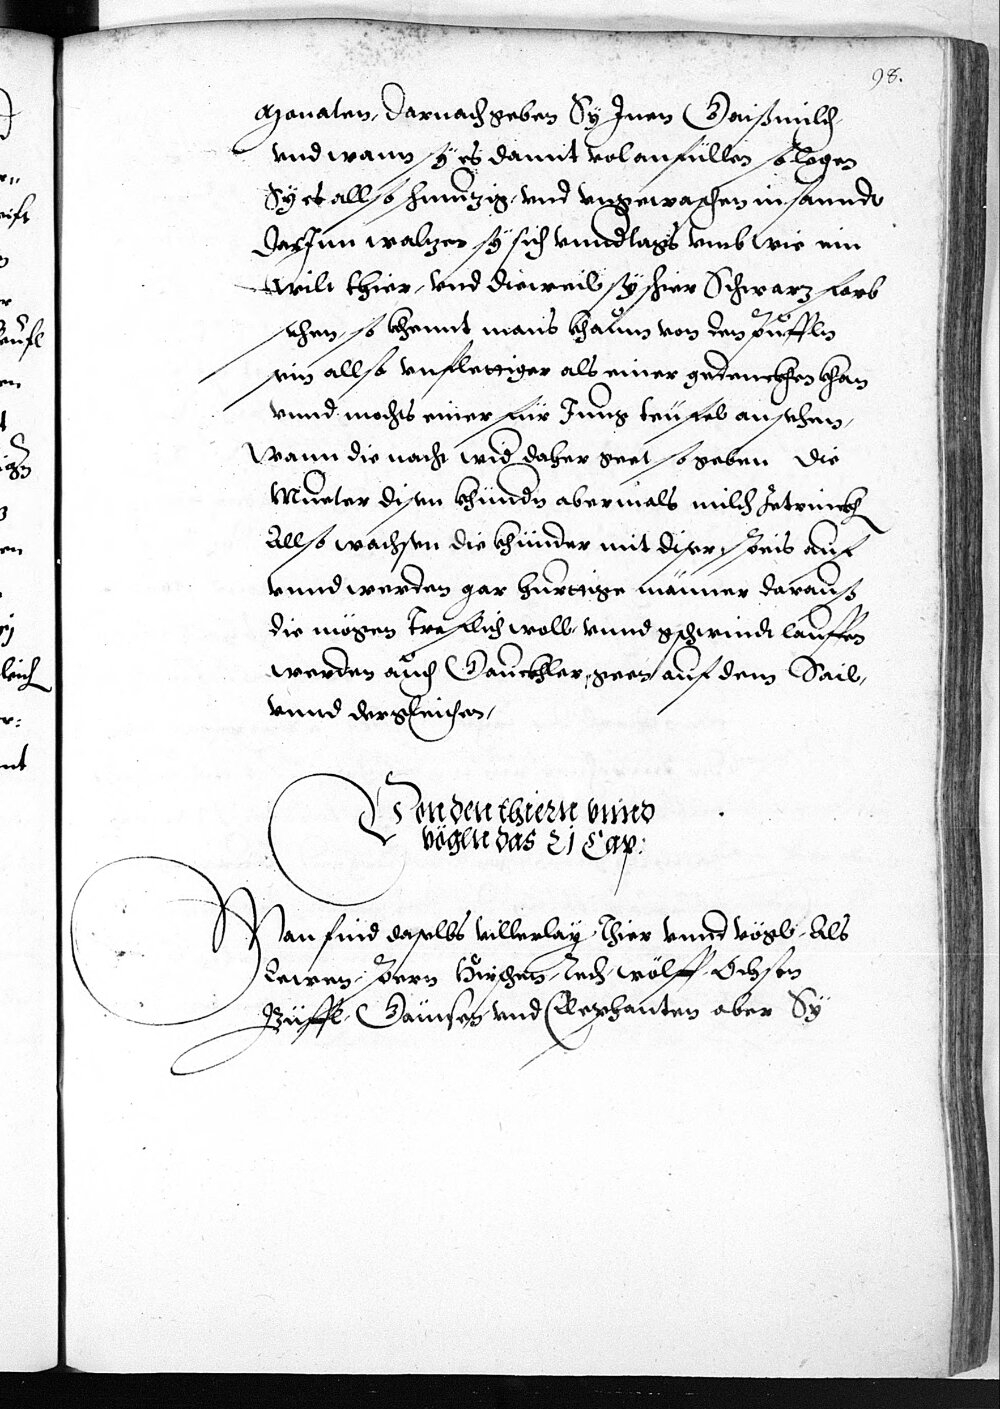 98.
Monaten, darnach geben Sy Inen Gaißmilch
vnd wann sy es damit vol anfüllen so legen
Sy es allso schmuzig, vnd vngewaschen in sanndt
darJnn walzen sy sich vnndtags vmb wie ein
wilt thier, vnd dieweil sy hier Schwarz farb
sehen, so khennt mans khaum von den püffln
ein allso vnflettiger als einer gedenckhen khan
vnnd mochts einer für Jung teüfel ansehen,
Wann die nacht wid daher geet so geben die
Mueter disen khündn abermals milch zetrinckh
Allso wachsen die khünder mit diser speis auf
vnnd werden gar hurttige männer darauß
die mögen treflich woll vnnd gschwindt lauffen
werden auch Gauckhler, geen auf dem Sail,
vnnd dergleichen,
Von den thiern vnnd
vögln das 21 Cap:
Man find daselbs villerlay Thier vnnd vögl, Als
Lewen, Pern Hirschen, Rech, wölff Ochsen
Püffl, Gämsen vnd Elephanten aber Sy